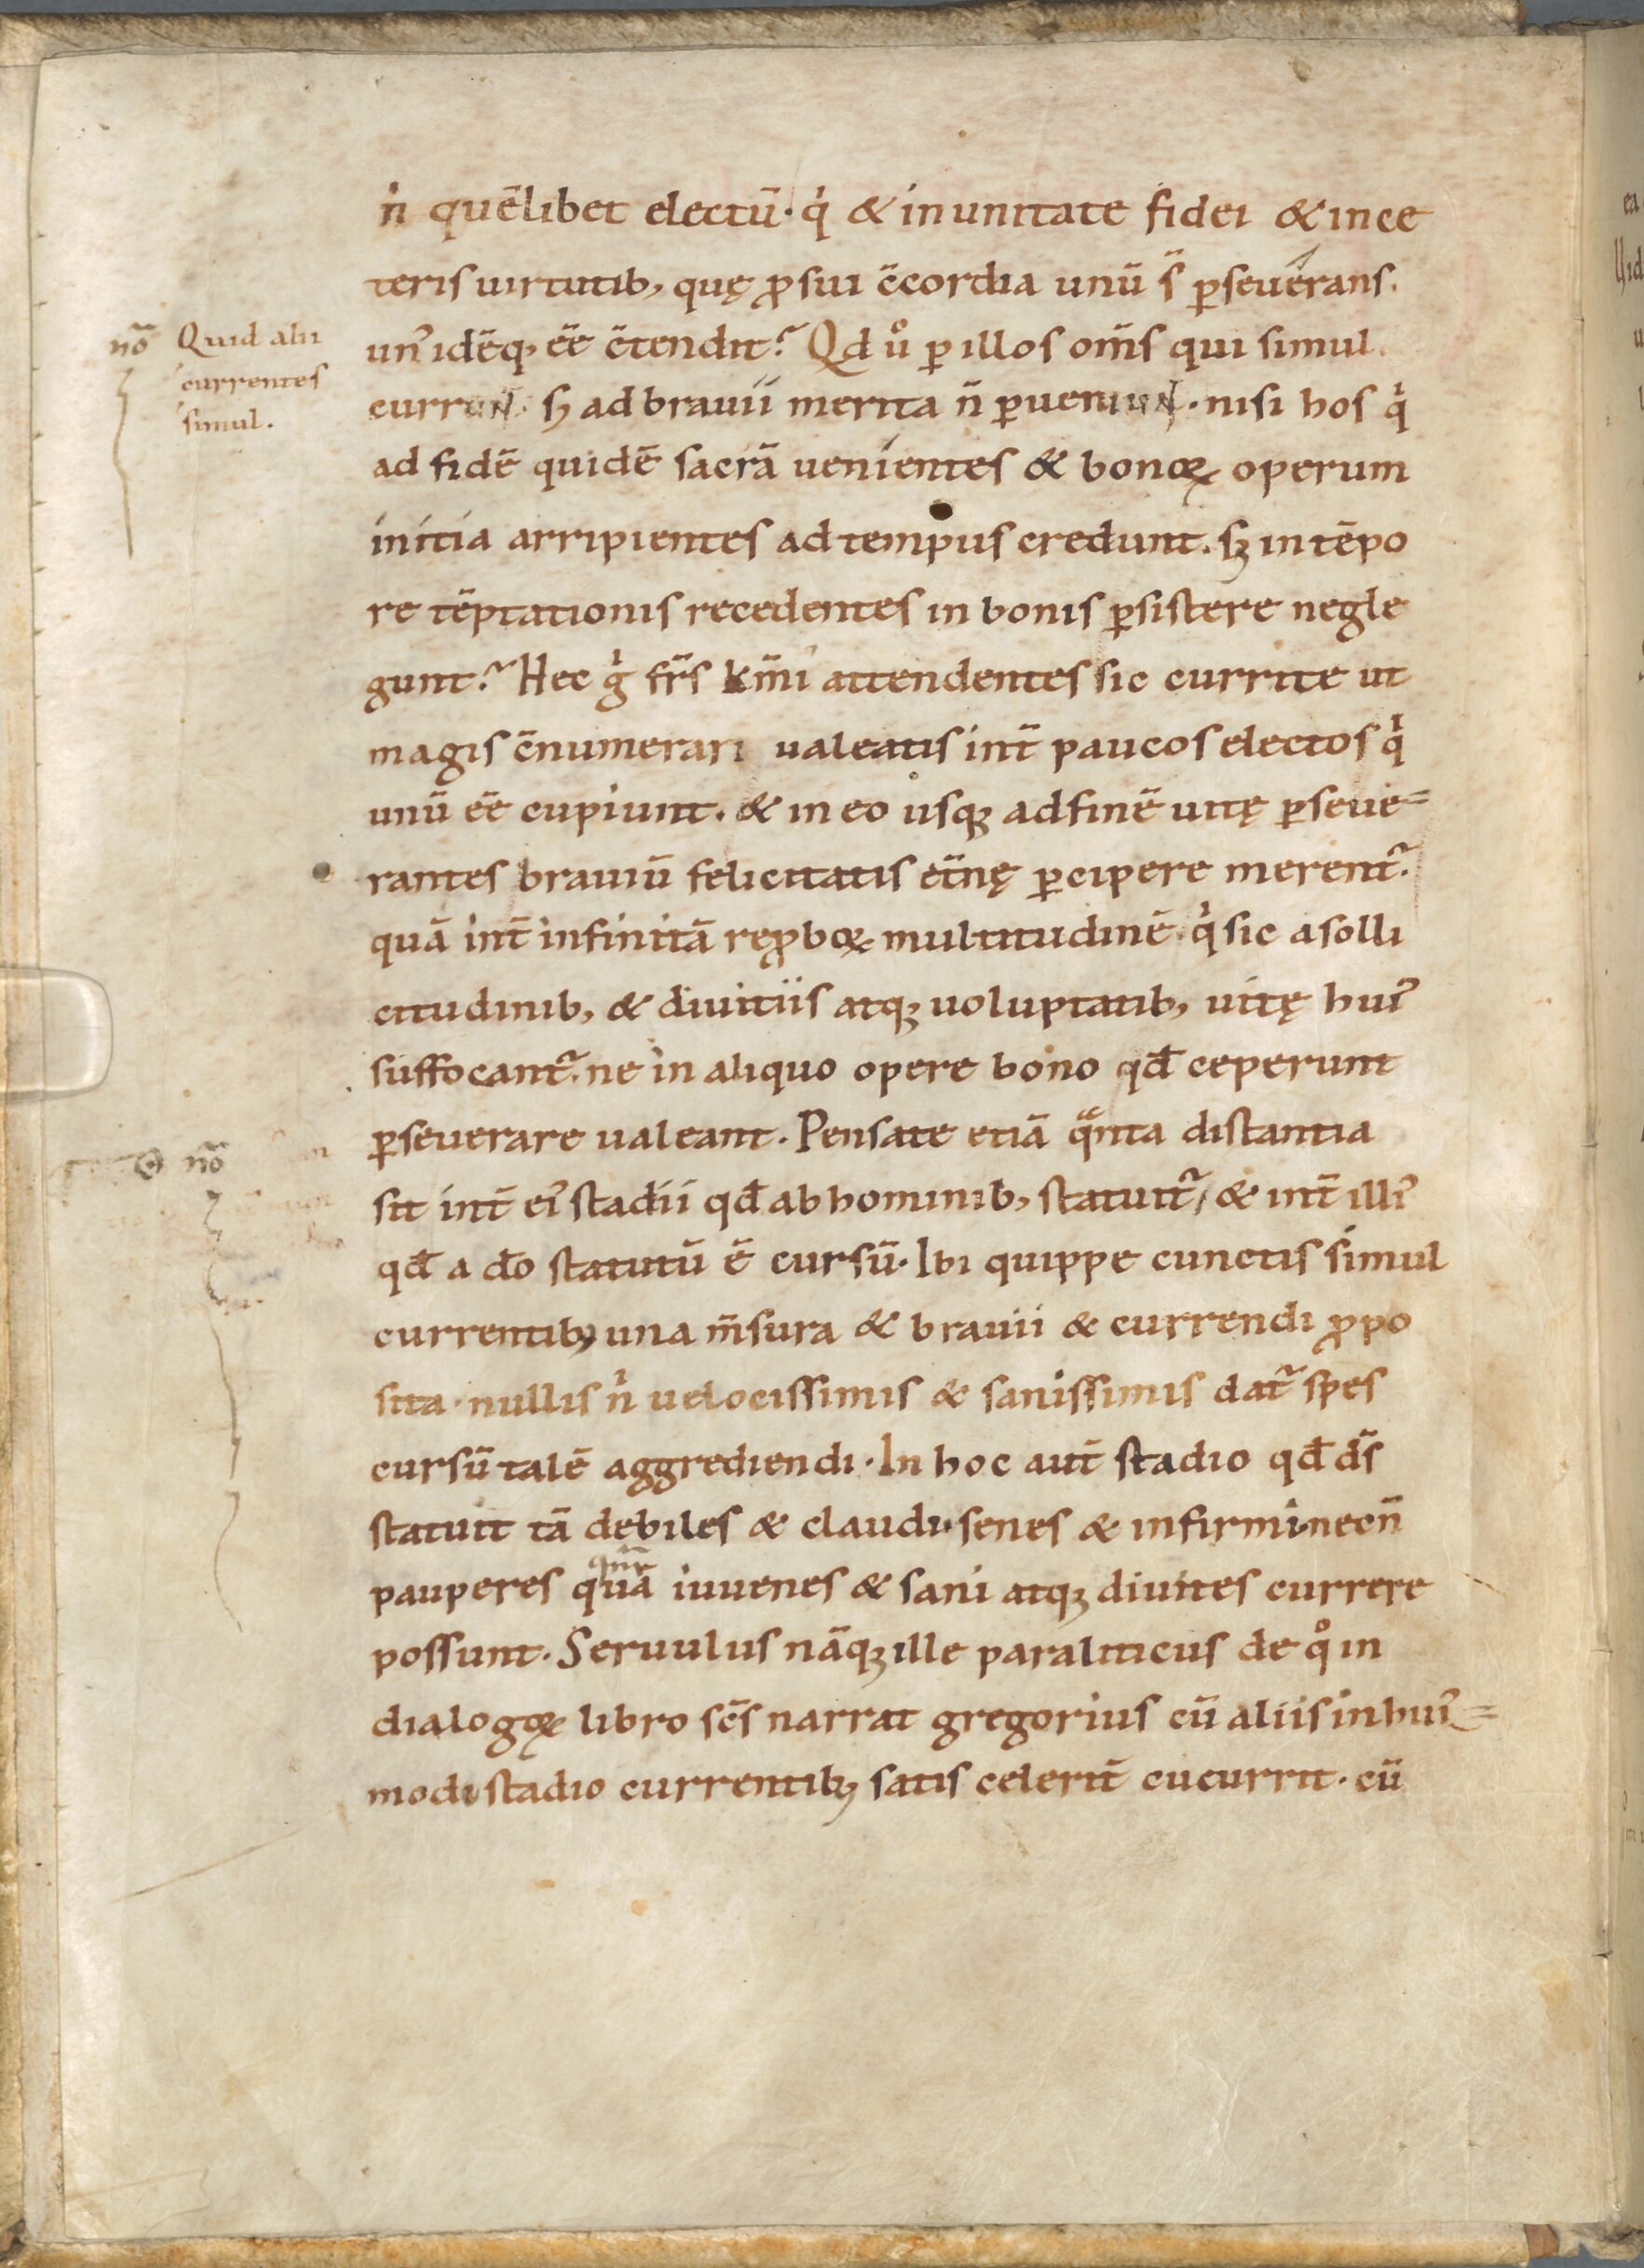 nͥ quēlibet electū· qͥ & in unitate fidei & in ce
teris uirtutib; quę ꝓ sui c̄cordia unū s̄ ꝑseuerans.
unꝰ idēq; ēē c̄tendit? Qd uͦ ꝑ illos om̄s qui simul
currunt. sꝫ ad brauii merita n̄ ꝑueniunt. nisi hos qͥ
ad fidē quidē sacrā uenientes & bonoꝝ operum
initia arripientes ad tempus credunt. sꝫ in tēpo
re tēptationis recedentes in bonis ꝑsistere negle
gunt? Hec gͥ fr̄s km̄i attendentes sic currite ut
magis c̄numerari ualeatis int̄ paucos electos qͥ
unū ēē cupiunt. & in eo usqꝫ ad finē uitę ꝑseue=
rantes brauiū felicitatis et̄nę ꝑcipere merent᷑.
quā int̄ infinitā reꝓboꝝ multitudinē. qͥ sic a solli
citudinib; & diuitiis atqꝫ uoluptatib; uitę huiꝰ
suffocant᷑. ne in aliquo opere bono qđ ceperunt
ꝑseuerare ualeant. Pensate etiā qᵃnta distantia
sit int̄ eiꝰ stadii qđ ab hominib; statuit᷑, & int̄ illiꝰ
qđ a dō statutū ē cursū. Ibi quippe cunctis simul
currentibꝫ una m̄sura & brauii & currendi ꝓpo
sita. nullis nͥ uelocissimis & sanissimis dat᷑ spes
cursū talē aggrediendi. In hoc aut̄ stadio qđ ds̄
statuit tā debiles & claudi. senes & infirmi. necn̄
pauperes quā iuuenes & sani atqꝫ diuites currere
possunt. Seruulus nāqꝫ ille paraliticus de qͦ in
dialogoꝝ libro sc̄s narrat gregorius cū aliis in huiꝰ=
modi stadio currentibꝫ satis celerit̄ cucurrit. cū
nō Quid alii
currentes
simul.
nō